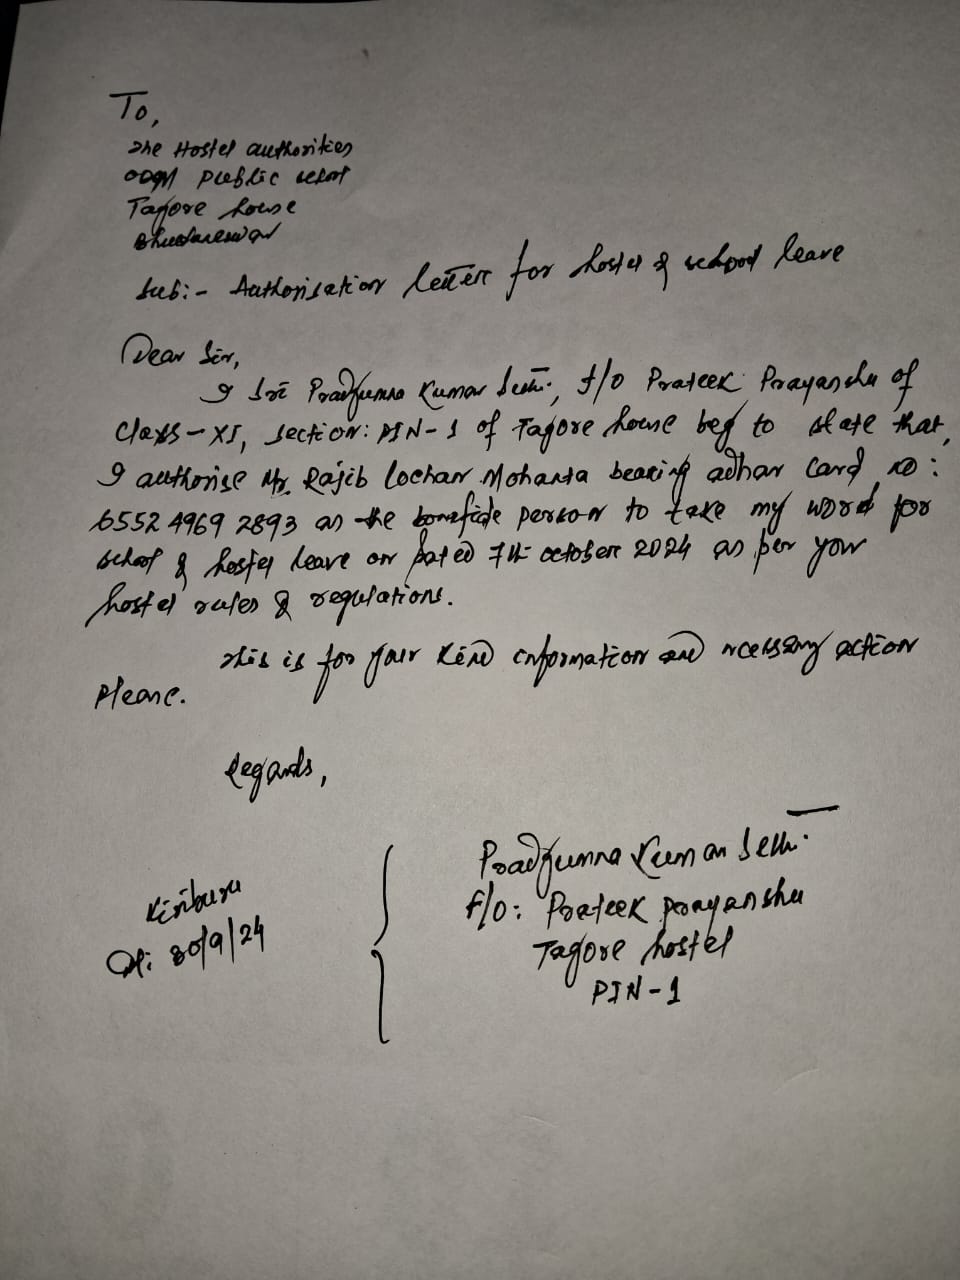 To,
The Hostel authorities
ODM Public school
Tagore house
Bhubaneswar
Sub:- Authorisation letter for hostel & school leave
Dear Sir,
I Sri Pradyumna Kumar Sethi, f/o Prateek Prayanshu of
Class-XI, Section: PIN-1 of Tagore house beg to state that,
I authorise Mr. Rajib Lochan Mohanta bearing adhar Card no:
6552 4969 2893 as the bonafide person to take my word for
school & hostel leave on dated 7th october 2024 as per your
hostel rules & regulations.
This is for your kind information and ncessary action
Please.
Regards,
Pradyumna Kumar Sethi
f/o: Prateek prayanshu
Tagore hostel
PIN-1
Kiriburu
Dt: 30/9/24